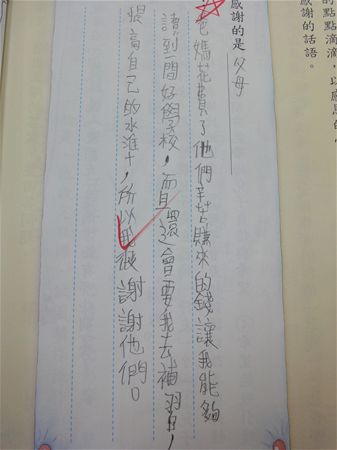 的點點滴滴，以感恩的
感謝的話語。
感謝的是 父母
爸媽花費了他們辛苦賺來的錢讓我能夠
讀到一間好學校，而且還會要我去補習，
提高自己的水準，所以我很謝謝他們。